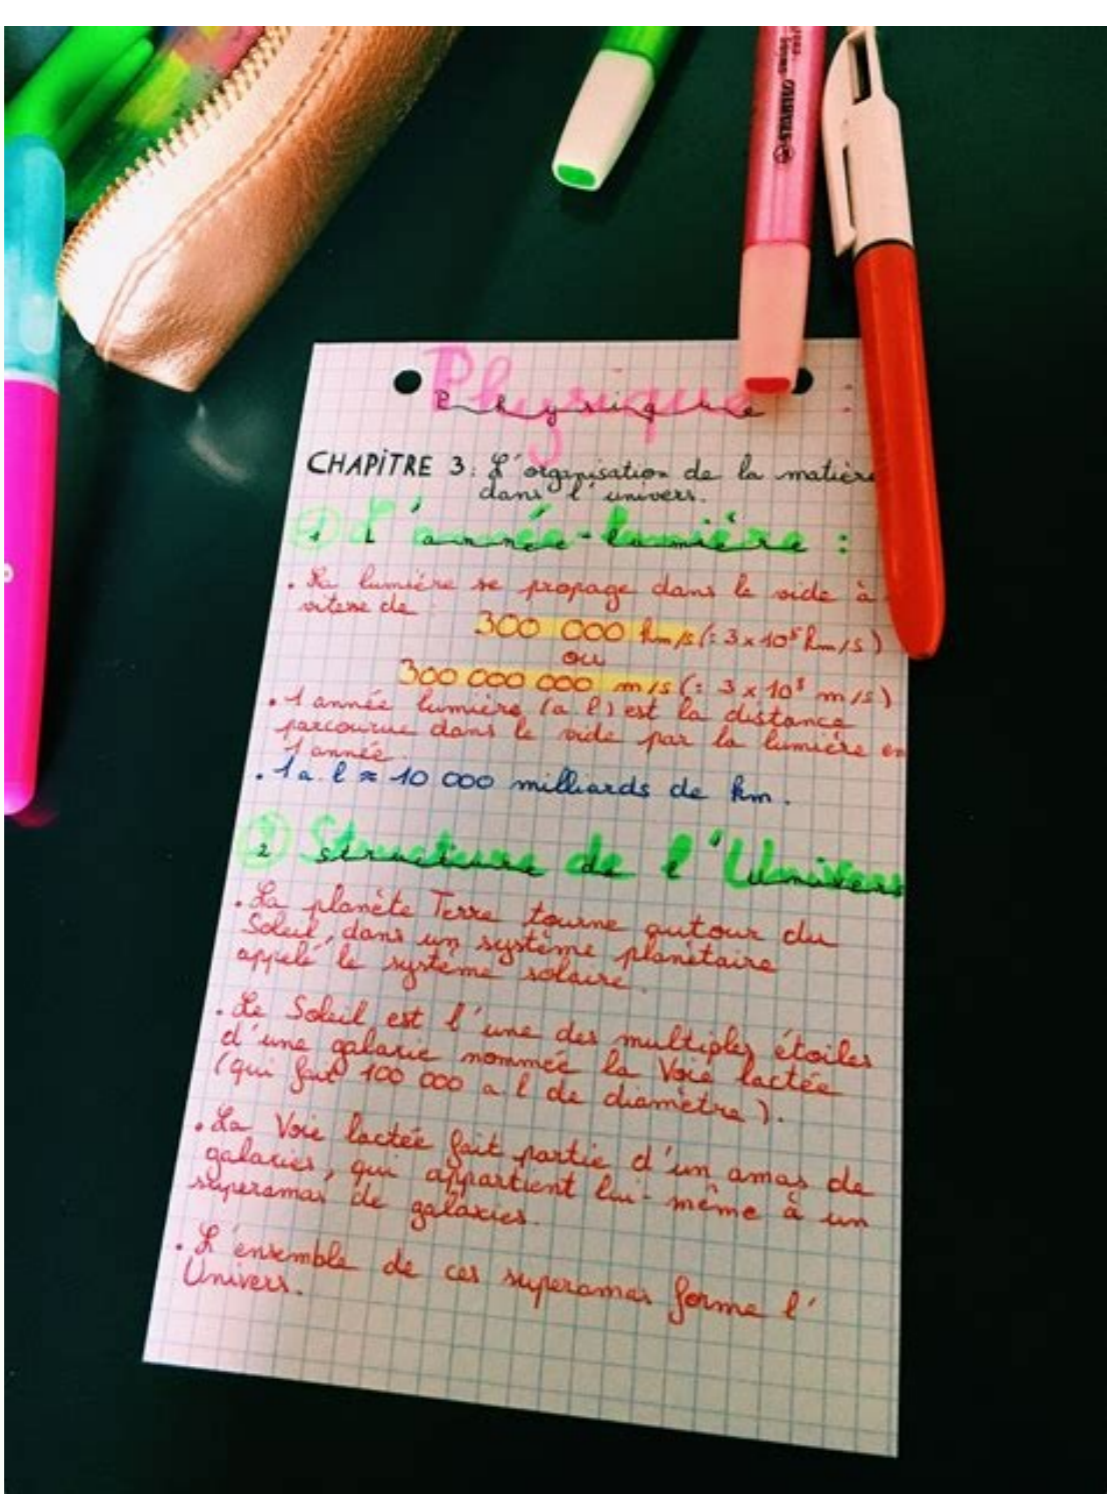 STABILO
Physique :
Physique
CHAPiTRE 3 : L'organisation de la matière
dans l'univers.
1 L'année-lumière :
. La lumière se propage dans le vide à
vitesse de :
300 000 km/s (= 3 x 10⁵ km/s)
ou
300 000 000 m/s (= 3 x 10⁸ m/s)
. 1 année lumière (a l) est la distance
parcourue dans le vide par la lumière en
1 année.
. 1 a. l ≈ 10 000 milliards de km.
2 Structure de l'Univers
. La planète Terre tourne autour du
Soleil, dans un système planétaire
appelé le système solaire.
. Le Soleil est l'une des multiples étoiles
d'une galaxie nommée la Voie lactée
(qui fait 100 000 a.l de diamètre).
. La Voie lactée fait partie d'un amas de
galaxies, qui appartient lui-même à un
superamas de galaxies.
. L'ensemble de ces superamas forme l'
Univers.